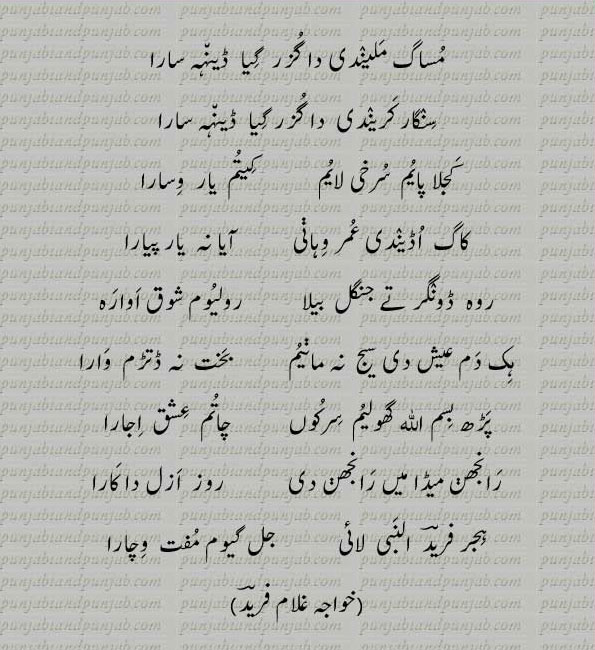 مُساگ مَلیندٖی دا گُزر گِیا ڈینہّہ سارا
سِنگار کَریندٖی دا گُزر گِیا ڈینہّہ سارا
کَجلا پایُم سُرخی لایُم کِیتُم یار وِسارا
کاگ اُڈیندٖی عُمر وِہانٖی آیا نہ یار پیارا
روہ ڈونگر تے جنگل بیلا رولیُوم شوق اَوارَہ
ہِک دَم عیش دی سیج نہ مانٖیُم بَخت نہ ڈتڑم وَارا
پَڑھ بِسم اللہ گھولیُم سِرکُوں چاتُم عِشق اِجارا
رَانجھن میڈا میں رَانجھن دی روز اَزل دا کَارا
ہِجر فریدؔ النَبی لائی جل گیوم مُفت وِچارا
(خواجہ غلام فریدؔ)
punjabiandpunjab.com